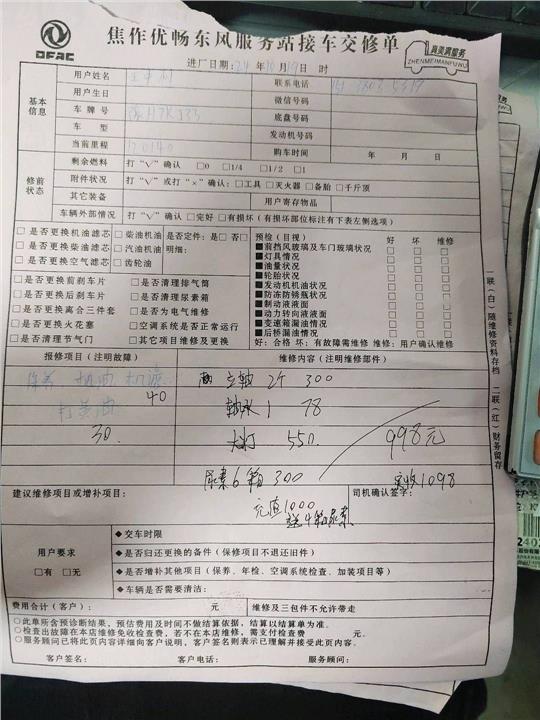 DFAC
焦作优畅东风服务站接车交修单
真美满服务
ZHENMEIMANFUWU
进厂日期:24年10月19日 时
基本信息
用户姓名
联系电话
用户生日
微信号码
车牌号
底盘号码
车型
发动机号码
当前里程 170140
购车时间 年 月 日
修前状态
剩余燃料 打“√”确认 □0 □1/4 □1/2 □1
附件状况 打“√”或打“×”确认:□工具 □灭火器 □备胎 □千斤顶
其它装备
用户寄存物品
车辆外部情况 打“√”确认 □完好 □有损坏(有损坏部位标注有下表左侧选项)
□是否更换机油滤芯 □柴油机油 是否定件:是□ 否□
□是否更换柴油滤芯 □汽油机油 明细:
□是否更换空气滤芯 □齿轮油
□是否更换前刹车片 □是否清理排气筒
□是否更换后刹车片 □是否清理尿素箱
□是否更换离合三件套 □是否为电气维修
□是否更换火花塞 □空调系统是否正常运行
□是否清理节气门 □其它项目维修及更换
预检(目视) 好 坏 维修
■前挡风玻璃及车门玻璃状况 □ □ □
■灯具情况 □ □ □
■油量状况 □ □ □
■轮胎状况 □ □ □
■发动机机油状况 □ □ □
■防冻防锈瓶状况 □ □ □
■制动液液面 □ □ □
■动力转向液液面 □ □ □
■变速箱漏油情况 □ □ □
■后桥漏油情况 □ □ □
好:合格 坏:有故障需维修 维修:用户确认维修
报修项目(注明故障)
维修内容(注明维修部件)
保养 机油 机滤
40
打黄油
30
立轴 2个 300
轴承 1 78
大灯 550
998元
尿素6箱 300
实收1098
建议维修项目或增补项目:
司机确认签字:
充值1000
送4箱尿素
用户要求
□有 □无
◆交车时限
◆是否归还更换的备件(保修项目不退还旧件)
◆是否增补其他项目(保养、年检、空调系统检查、加装项目等)
◆车辆是否需要清洁:
费用合计(客户): 元
维修及三包件不允许带走
○此单所含预诊断结果,预估费用及时间不做结算依据,结算以结算单为准。
○检查出故障在本店维修免收检查费,若不在本店维修,需支付检查费 元。
○服务顾问已将此页内容详细向客户说明,客户签名则表示已理解并接受此页内容。
客户签名: 客户电话: 服务顾问:
一联(白)随维修资料存档 二联(红)财务留存